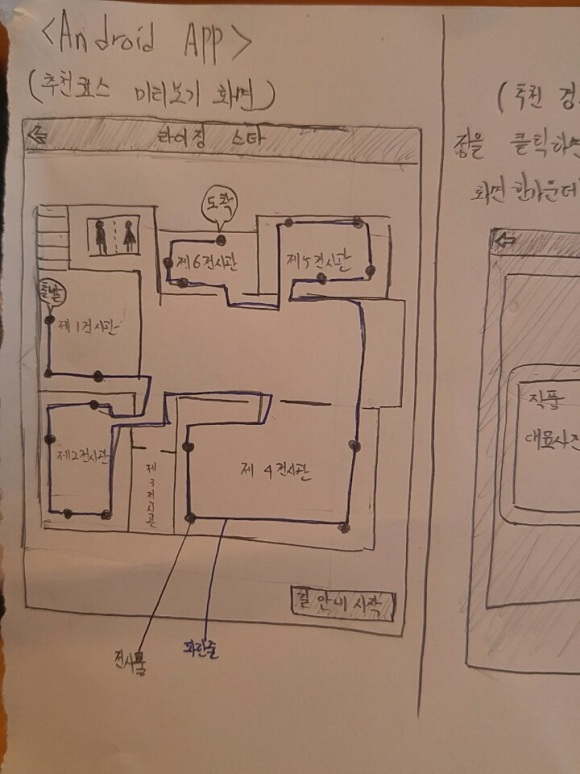 <Android App>
(추천코스 미리보기 화면)
라이징 스타
도착
제6전시관
제5전시관
출발
제1전시관
제2전시관
제3전시관
제 4전시관
길 안내 시작
전시품
파란줄
(추천 경
점을 클릭하면
화면 한가운데
작품
대표사진